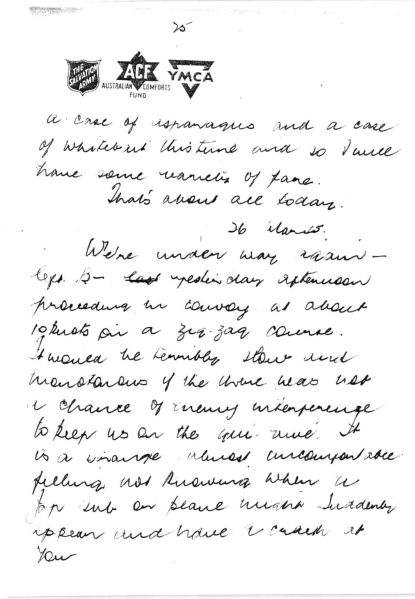 25
THE SALVATION ARMY
ACF
AUSTRALIAN COMFORTS FUND
YMCA
a case of asparagus and a case
of whitebait this time and so I will
have some variety of fare.
That's about all today.
26
We're under way again –
yesterday afternoon
proceeding in convoy at about
10 knots on a zig-zag course.
It would be terribly slow and
monotonous if the there was not
a chance of enemy interference
to keep us on the qui-vive. It
is a strange almost uncomfortable
feeling not knowing when a
Jap sub or plane might suddenly
appear and have a crack at
you